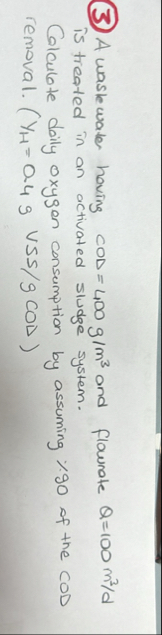 ③ A wastewater having COD = 400 g/m³ and flowrate Q = 100 m³/d
is treated in an activated sludge system.
Calculate daily oxygen consumption by assuming %90 of the COD
removal. (YH = 0.4 g VSS/g COD)